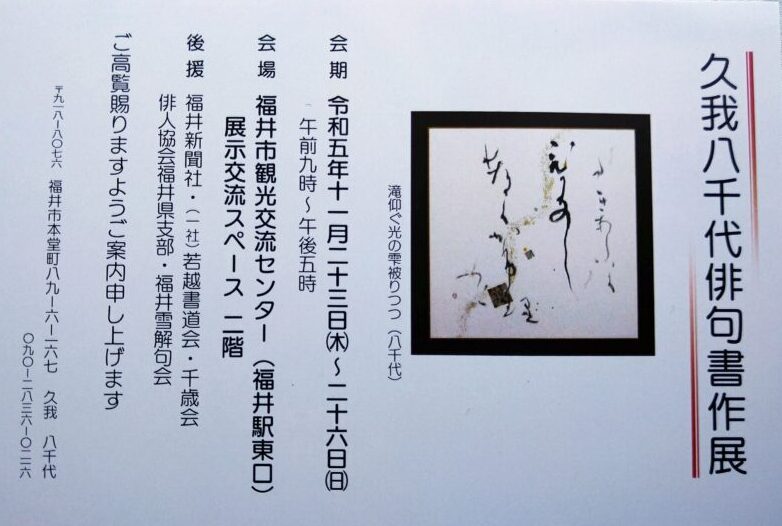 久我八千代俳句書作展
滝仰ぐ光の雫被りつつ（八千代）
会期　令和五年十一月二十三日㈭～二十六日㈰
午前九時～午後五時
会場　福井市観光交流センター（福井駅東口）
展示交流スペース　二階
後援　福井新聞社・（一社）若越書道会・千歳会
俳人協会福井県支部・福井雪解句会
ご高覧賜りますようご案内申し上げます
〒九一八－八〇七六　福井市本堂町八九－六－一六七　久我　八千代
〇九〇－二八三六－〇二二六